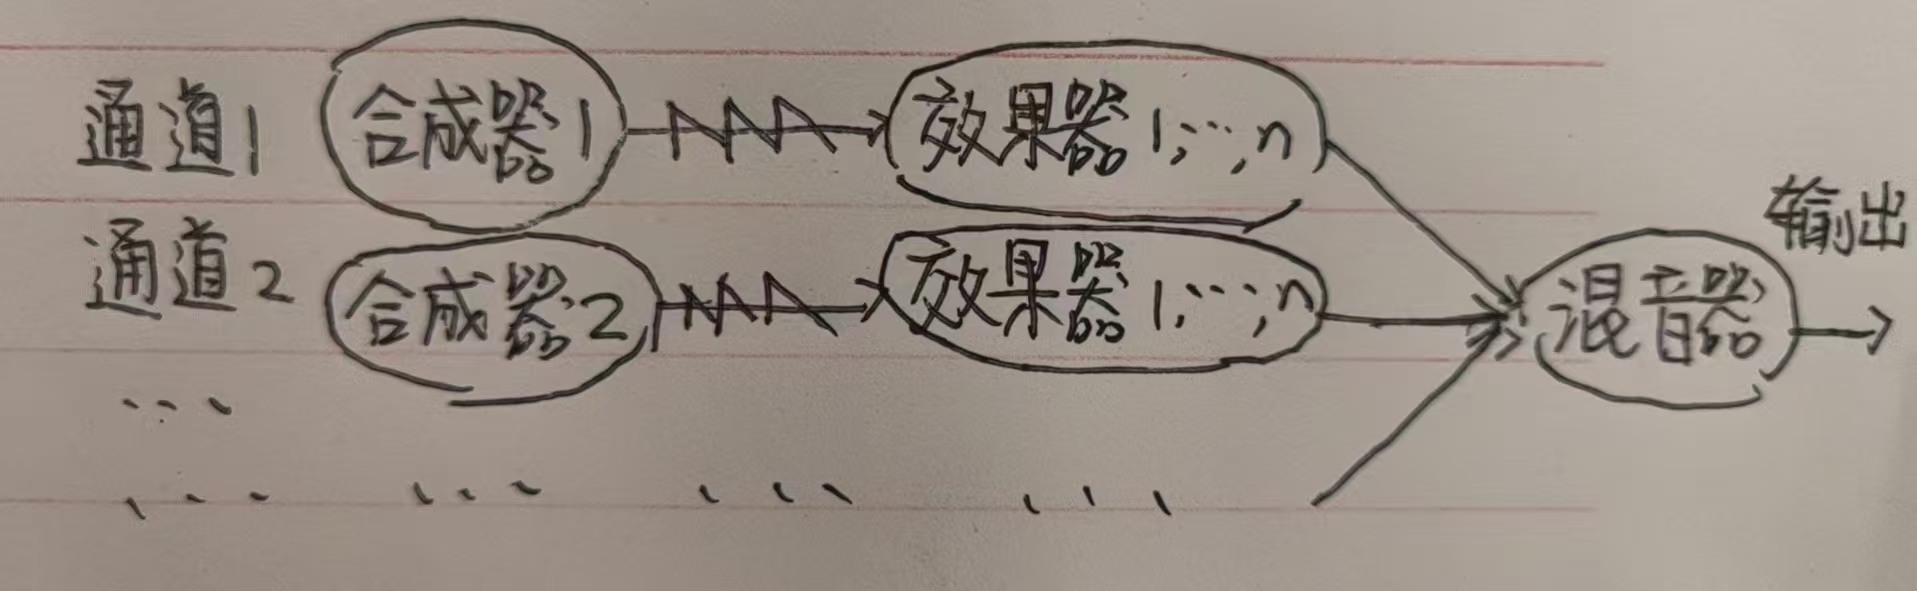 通道1 合成器1 效果器1,…,n
输出
通道2 合成器2 效果器1,…,n 混音器
…
… … … …